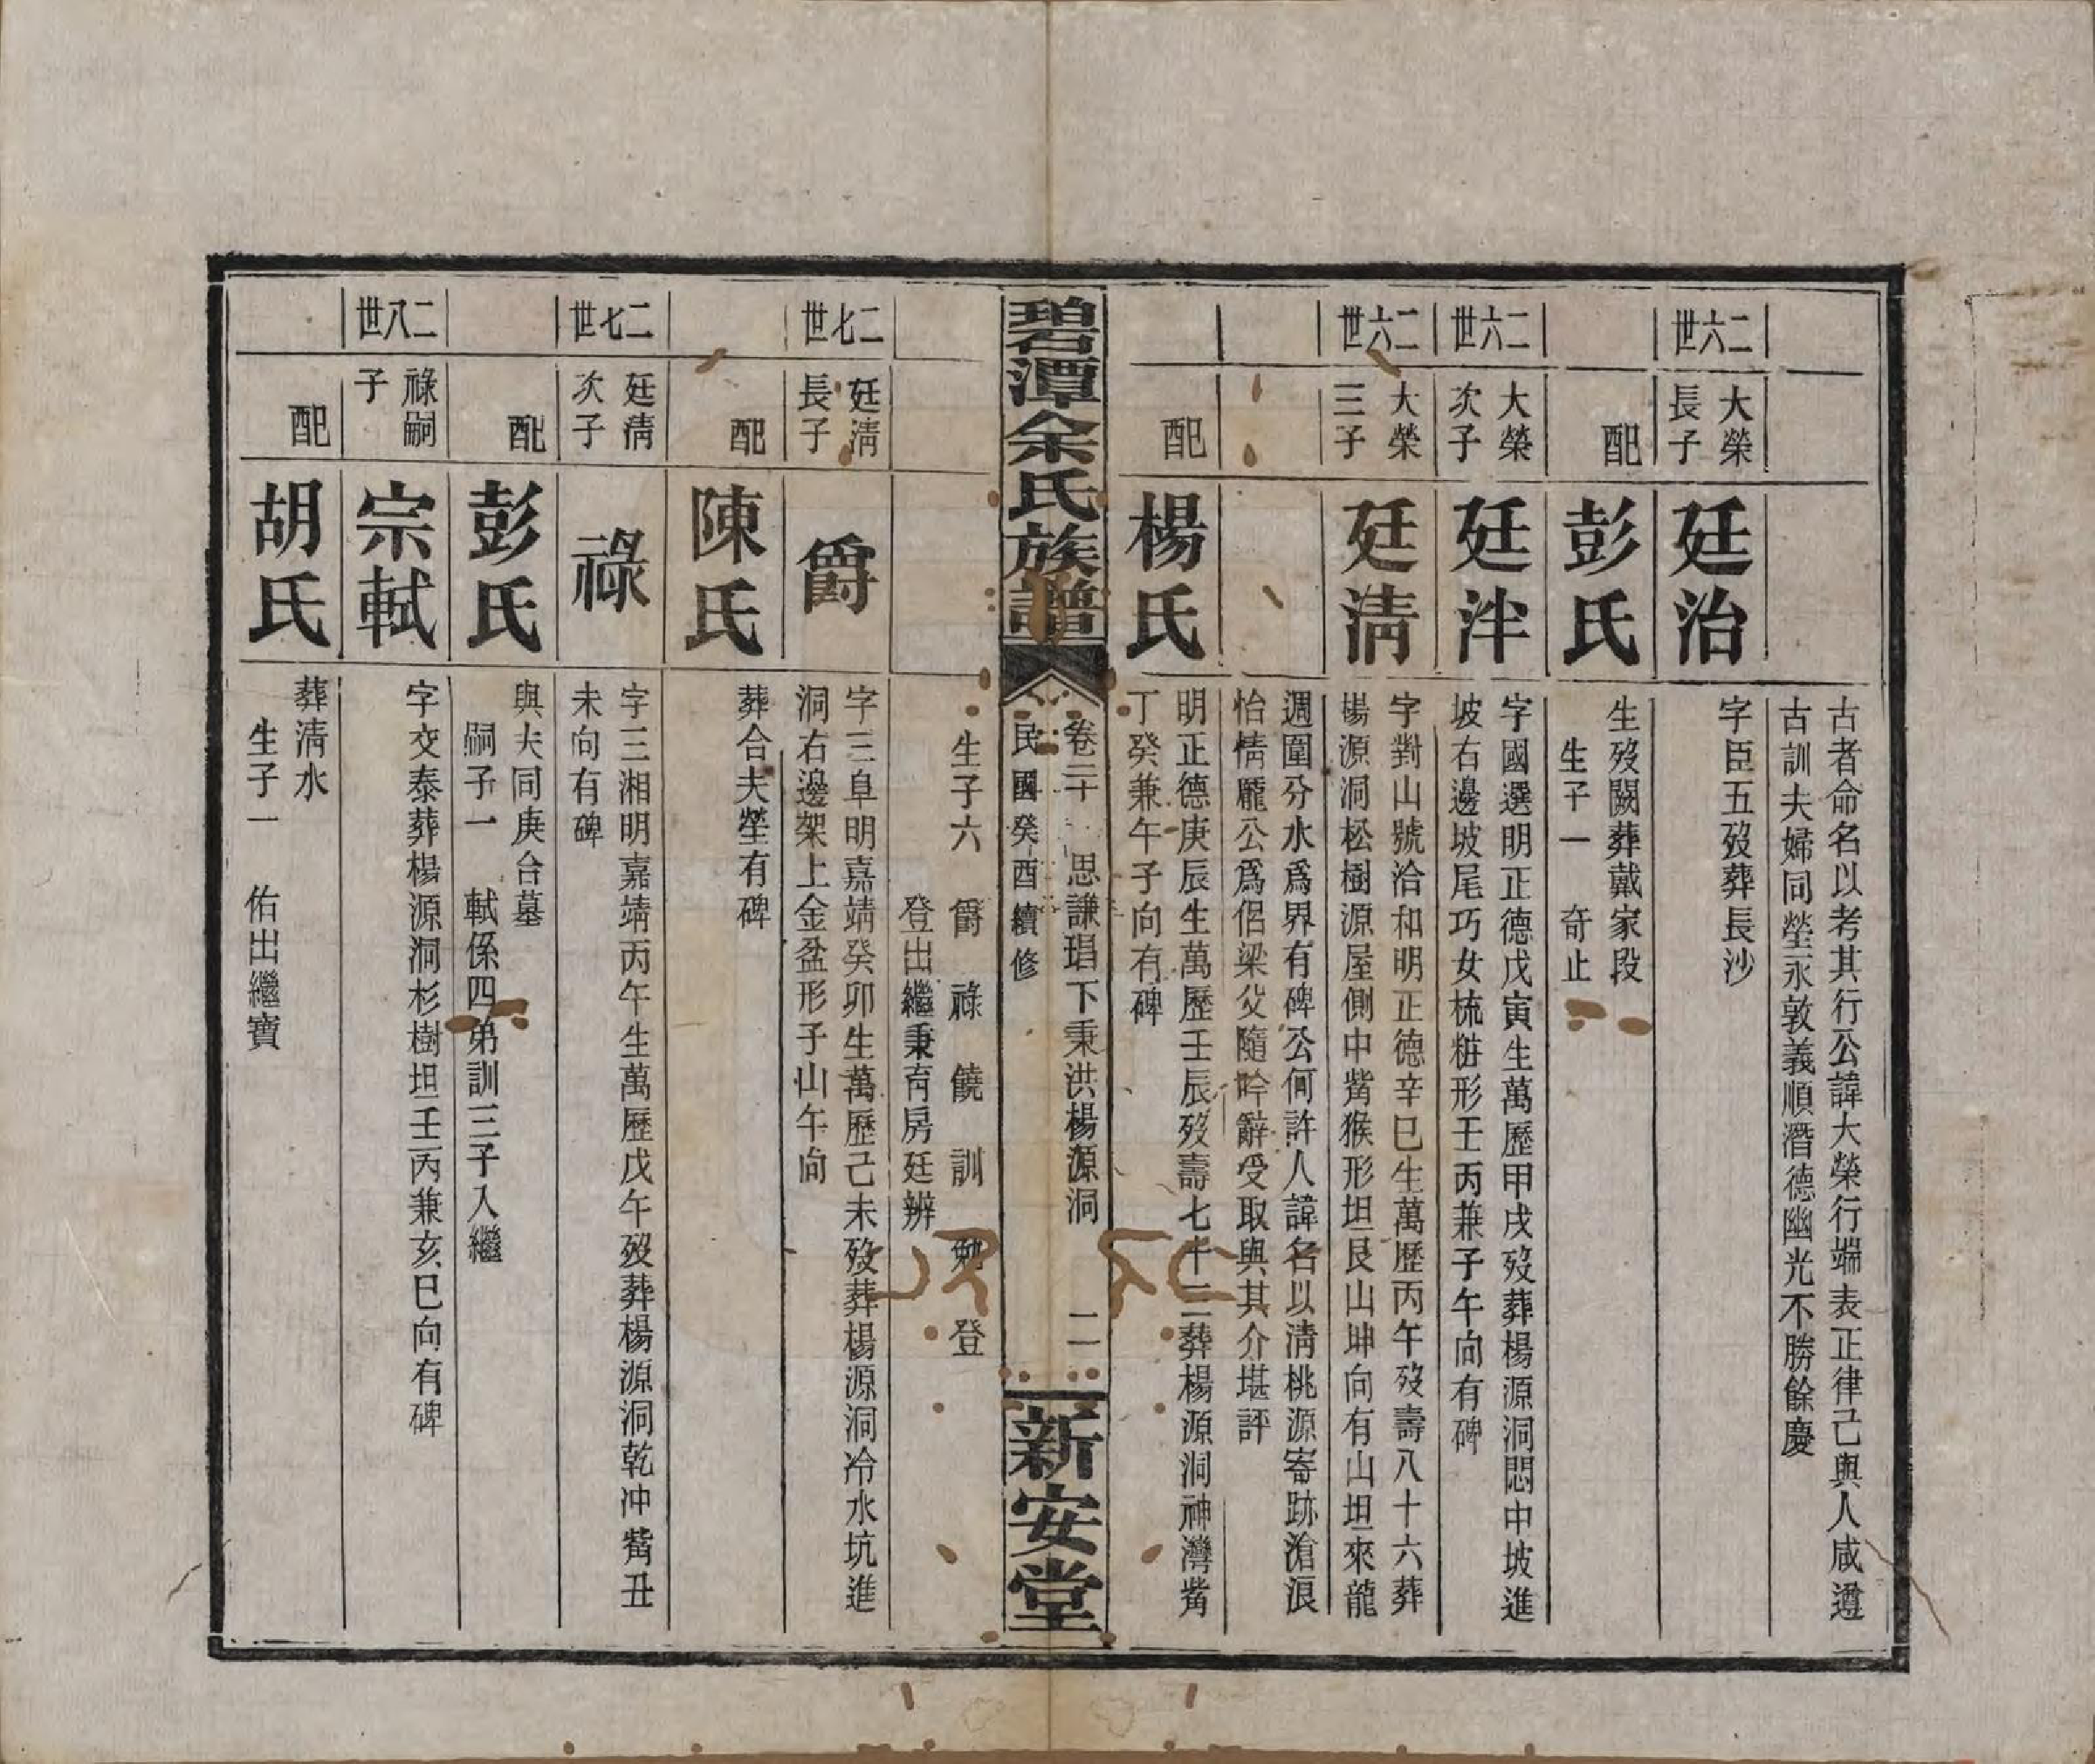 古者命名以考其行公諱大榮行端表正律己與人咸遵
古訓夫婦同塋永敦義順潛德幽光不勝餘慶
二六世
大榮
長子
廷治
字臣五歿葬長沙
配
彭氏
生歿闕葬戴家段
生子一　奇止
二六世
大榮
次子
廷津
字國選明正德戊寅生萬歷甲戌歿葬楊源洞悶中坡進
坡右邊坡尾巧女梳粧形壬丙兼子午向有碑
二六世
大榮
三子
廷清
字對山號洽和明正德辛巳生萬歷丙午歿壽八十六葬
楊源洞松樹源屋側中觜猴形坦艮山坤向有山坦來龍
週圍分水為界有碑公何許人諱名以清桃源寄跡滄浪
怡情龐公爲侶梁父隨吟辭受取與其介堪評
配
楊氏
明正德庚辰生萬歷壬辰歿壽七十三葬楊源洞神灣觜
丁癸兼午子向有碑
碧潭余氏族譜
卷三十　思謙琩下秉洪楊源洞　二
民國癸酉續修
新安堂
生子六　爵　祿　饒　訓　勉　登
登出繼秉育房廷辨
二七世
廷清
長子
爵
字三阜明嘉靖癸卯生萬歷己未歿葬楊源洞冷水坑進
洞右邊架上金盆形子山午向
配
陳氏
葬合夫塋有碑
二七世
廷清
次子
祿
字三湘明嘉靖丙午生萬歷戊午歿葬楊源洞乾冲觜丑
未向有碑
配
彭氏
與夫同庚台墓
嗣子一　軾係四弟訓三子入繼
二八世
祿嗣
子
宗軾
字交泰葬楊源洞杉樹坦壬丙兼亥巳向有碑
配
胡氏
葬清水
生子一　佑出繼寶